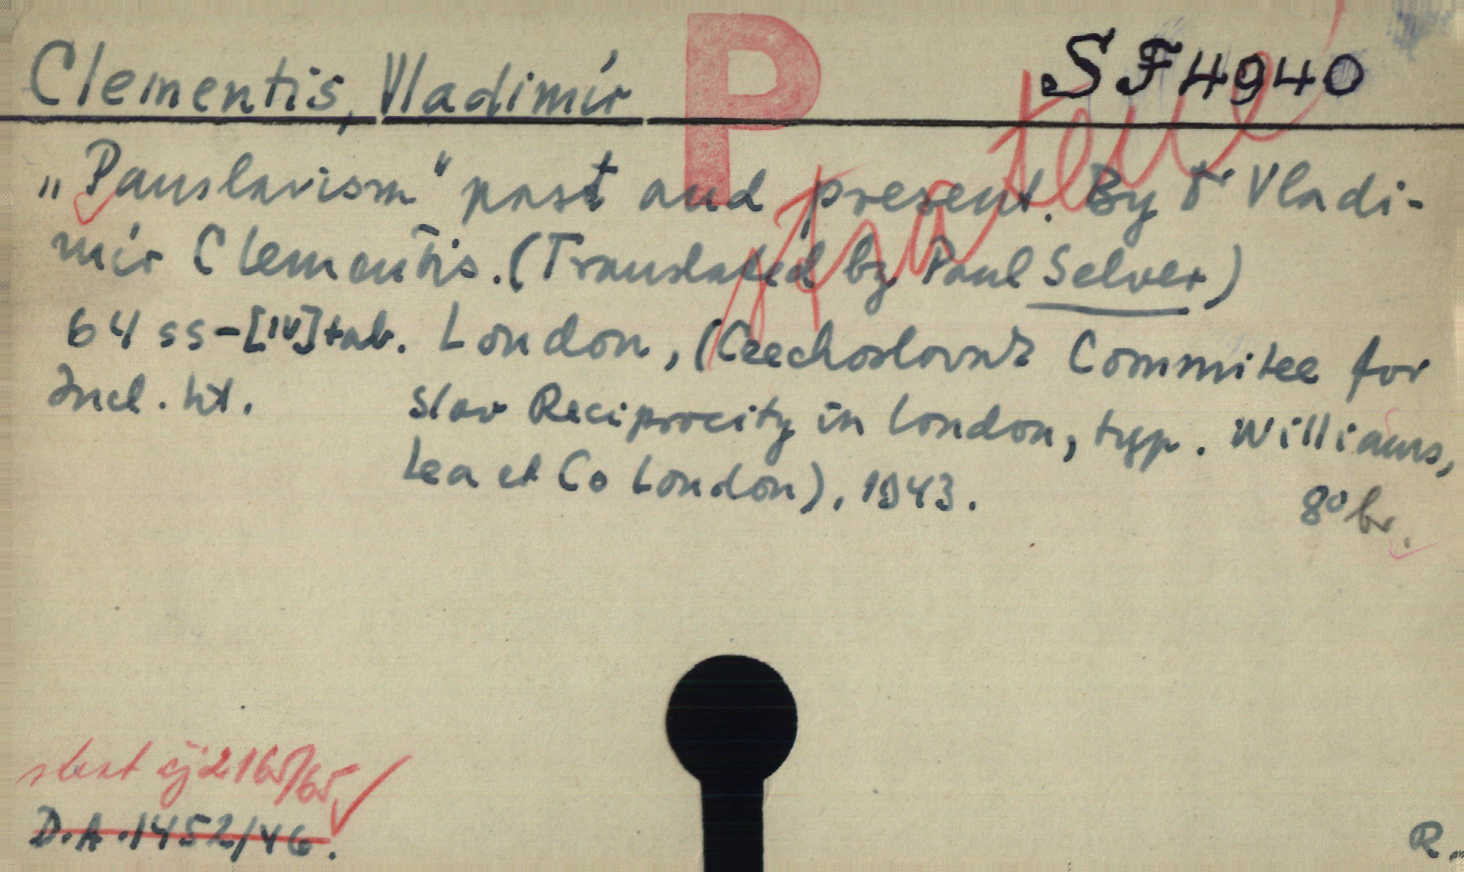 Clementis, Vladimír P SF4940
„Panslavism“ past and present. By Dr Vladi-
mír Clementis. (Translated by Paul Selver)
64 ss-[IV] tab. London, (Czechoslovak Commitee for
Incl. tit. Slav Reciprocity in London, typ. Williams,
Lea et Co London), 1943.
8° br.
čj 2165/65
D.A. 1452/46.
R.